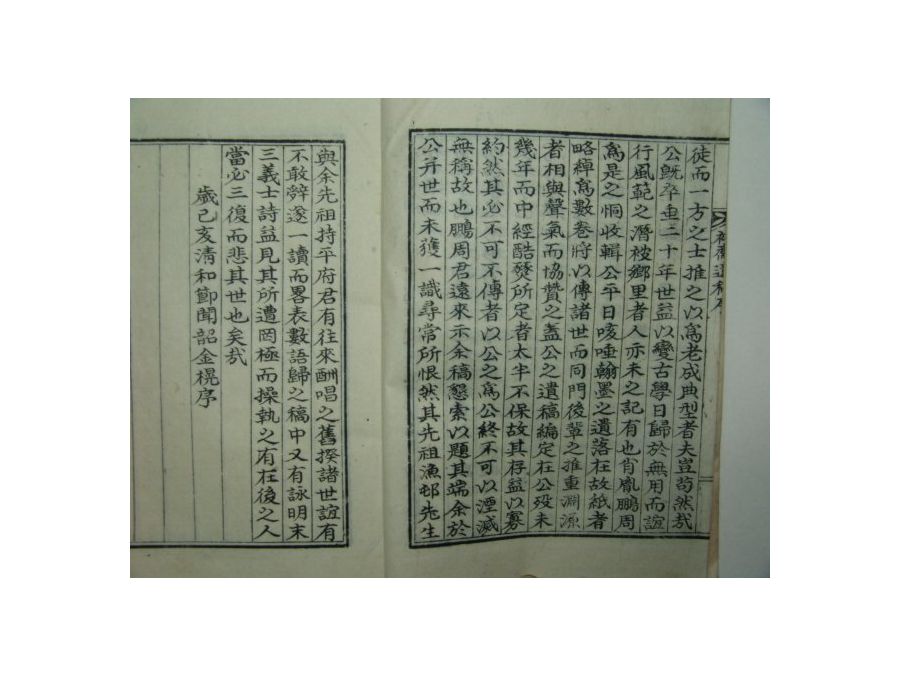 徒而一方之士推之以爲老成典型者夫豈苟然哉
公旣卒垂二十年世益以變古學日歸於無用而誼
行風範之潛被鄕里者人亦未之記有也肖胤鵬周
爲是之恫收輯公平日咳唾翰墨之遺落在故紙者
略繟爲數卷將以傳諸世而同門後輩之推重淵源
者相與聲氣而協贊之盖公之遺稿編定在公歿未
幾年而中經酷燹所定者太半不保故其存益以寡
約然其必不可不傳者以公之爲公終不可以湮滅
無稱故也鵬周君遠來示余稿懇索以題其端余於
公并世而未獲一識尋常所恨然其先祖漁邨先生
與余先祖持平府君有往來酬唱之舊揆諸世誼有
不敢辤遂一讀而畧表數語歸之稿中又有詠明末
三義士詩益見其所遭罔極而操執之有在後之人
當必三復而悲其世也矣哉
歲己亥淸和節聞韶金榥序
齋遺稿序